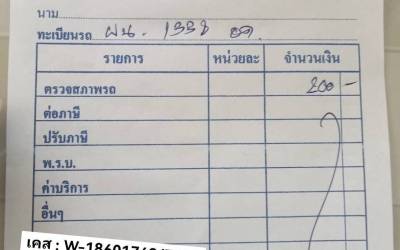 นาม
ทะเบียนรถ ผน. 1338 อด.
รายการ หน่วยละ จำนวนเงิน
ตรวจสภาพรถ 200 -
ต่อภาษี
ปรับภาษี
พ.ร.บ.
ค่าบริการ
อื่นๆ
เคส :